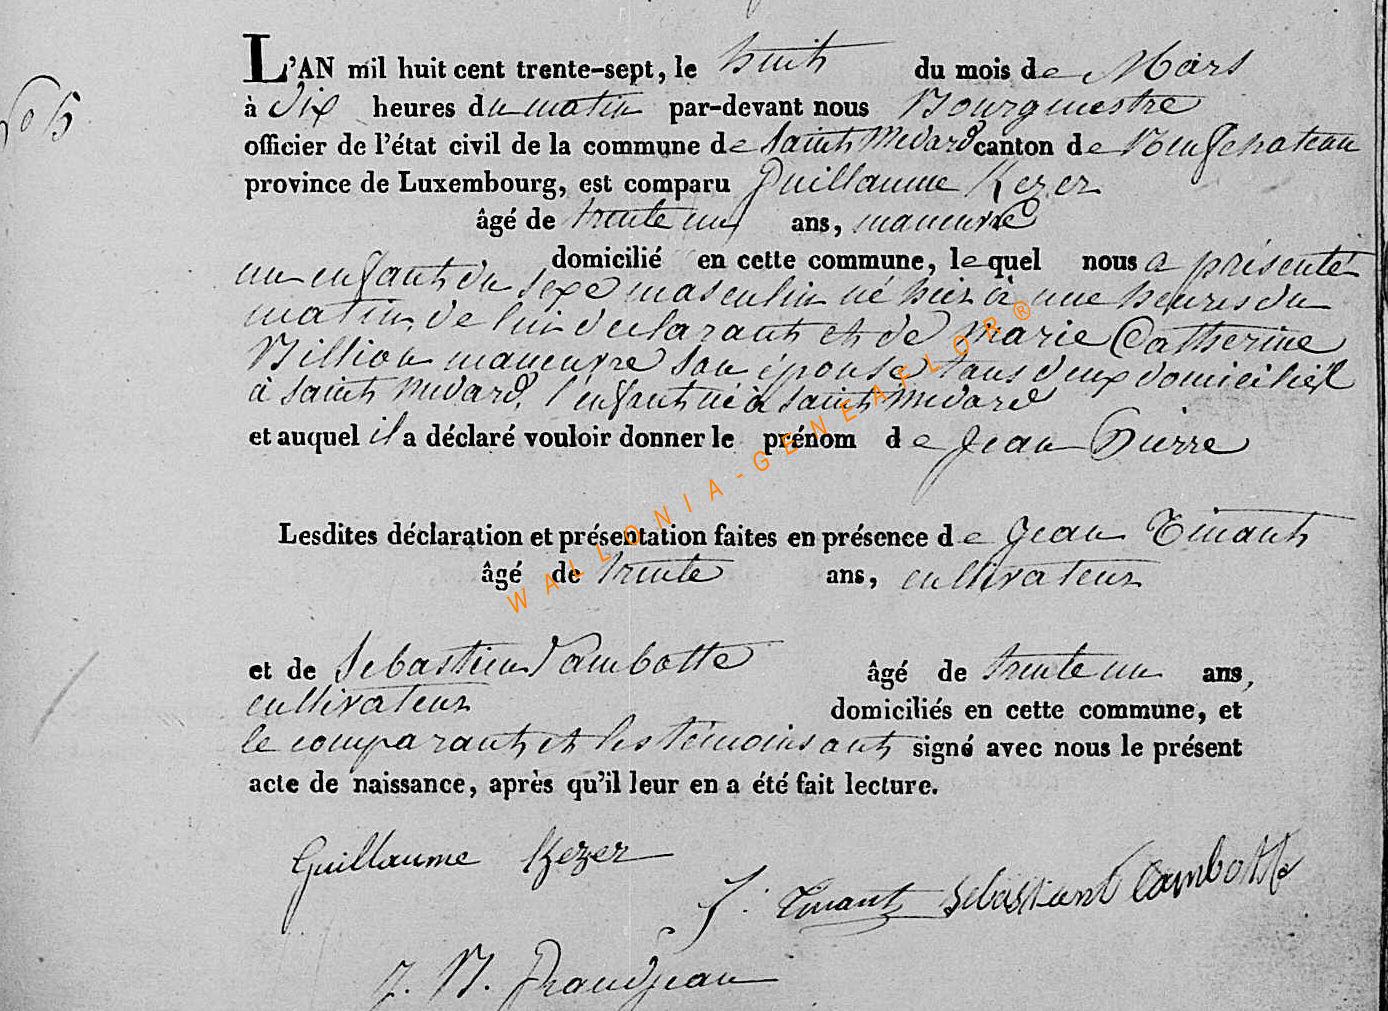 N° 5
L'AN mil huit cent trente-sept, le huit du mois de Mars
à dix heures du matin par-devant nous Bourgmestre
officier de l'état civil de la commune de Saint Medard canton de Neufchateau
province de Luxembourg, est comparu Guillaume Kezer
âgé de trente un ans, maneuvre
domicilié en cette commune, le quel nous a présenté
un enfant du sexe masculin né hier à une heures du
matin, de lui declarant et de Marie Catherine
Billion maneuvre son épouse tous deux domiciliés
à Saint Medard, l'enfant né à Saint Medard
et auquel il a déclaré vouloir donner le prénom de Jean Pierre
Lesdites déclaration et présentation faites en présence de Jean Tinant
âgé de trente ans, cultivateur
et de Sebastien Lambotte âgé de trente un ans,
cultivateur domiciliés en cette commune, et
le comparant et les témoins ont signé avec nous le présent
acte de naissance, après qu'il leur en a été fait lecture.
Guillaume Kezer
J. Tinant Sebastient Lambotte
J. N. Grandjean
WALLONIA-GENEAFLOR®